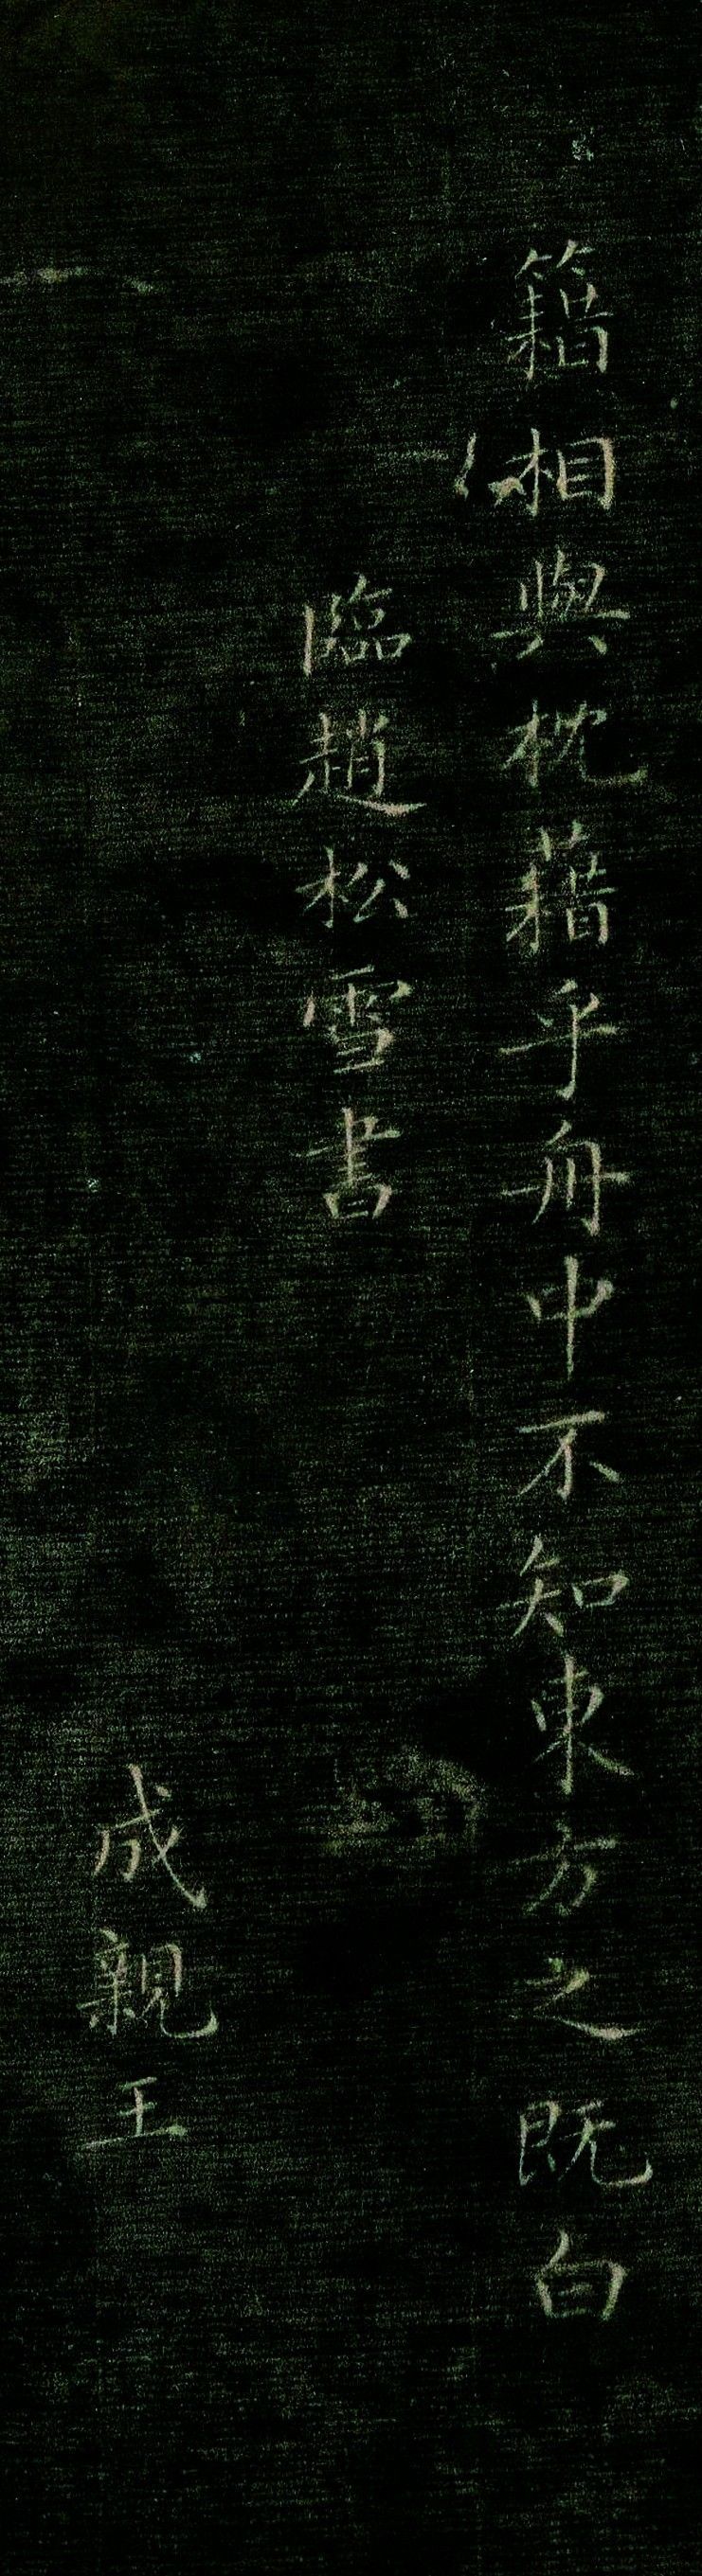 籍相與枕藉乎舟中不知東方之既白
臨趙松雪書
成親王